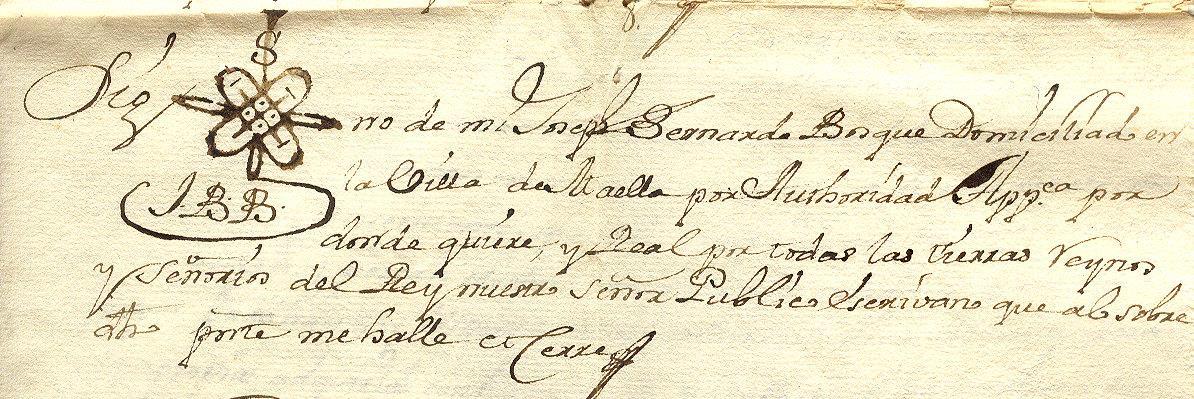 S
Sig no de mi Joseph Bernardo Bosque Domiciliado en
J.B.B.
la Villa de Maella por Authoridad App.ca por
donde quiere, y Real por todas las tierras Reynos
y Señorios del Rey nuestro señor Publico Escrivano que al sobre
dho pnte me halle et Cerre